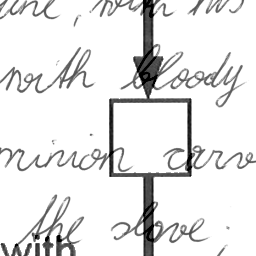 with his
north bloody
minion carv
the slave ;
with